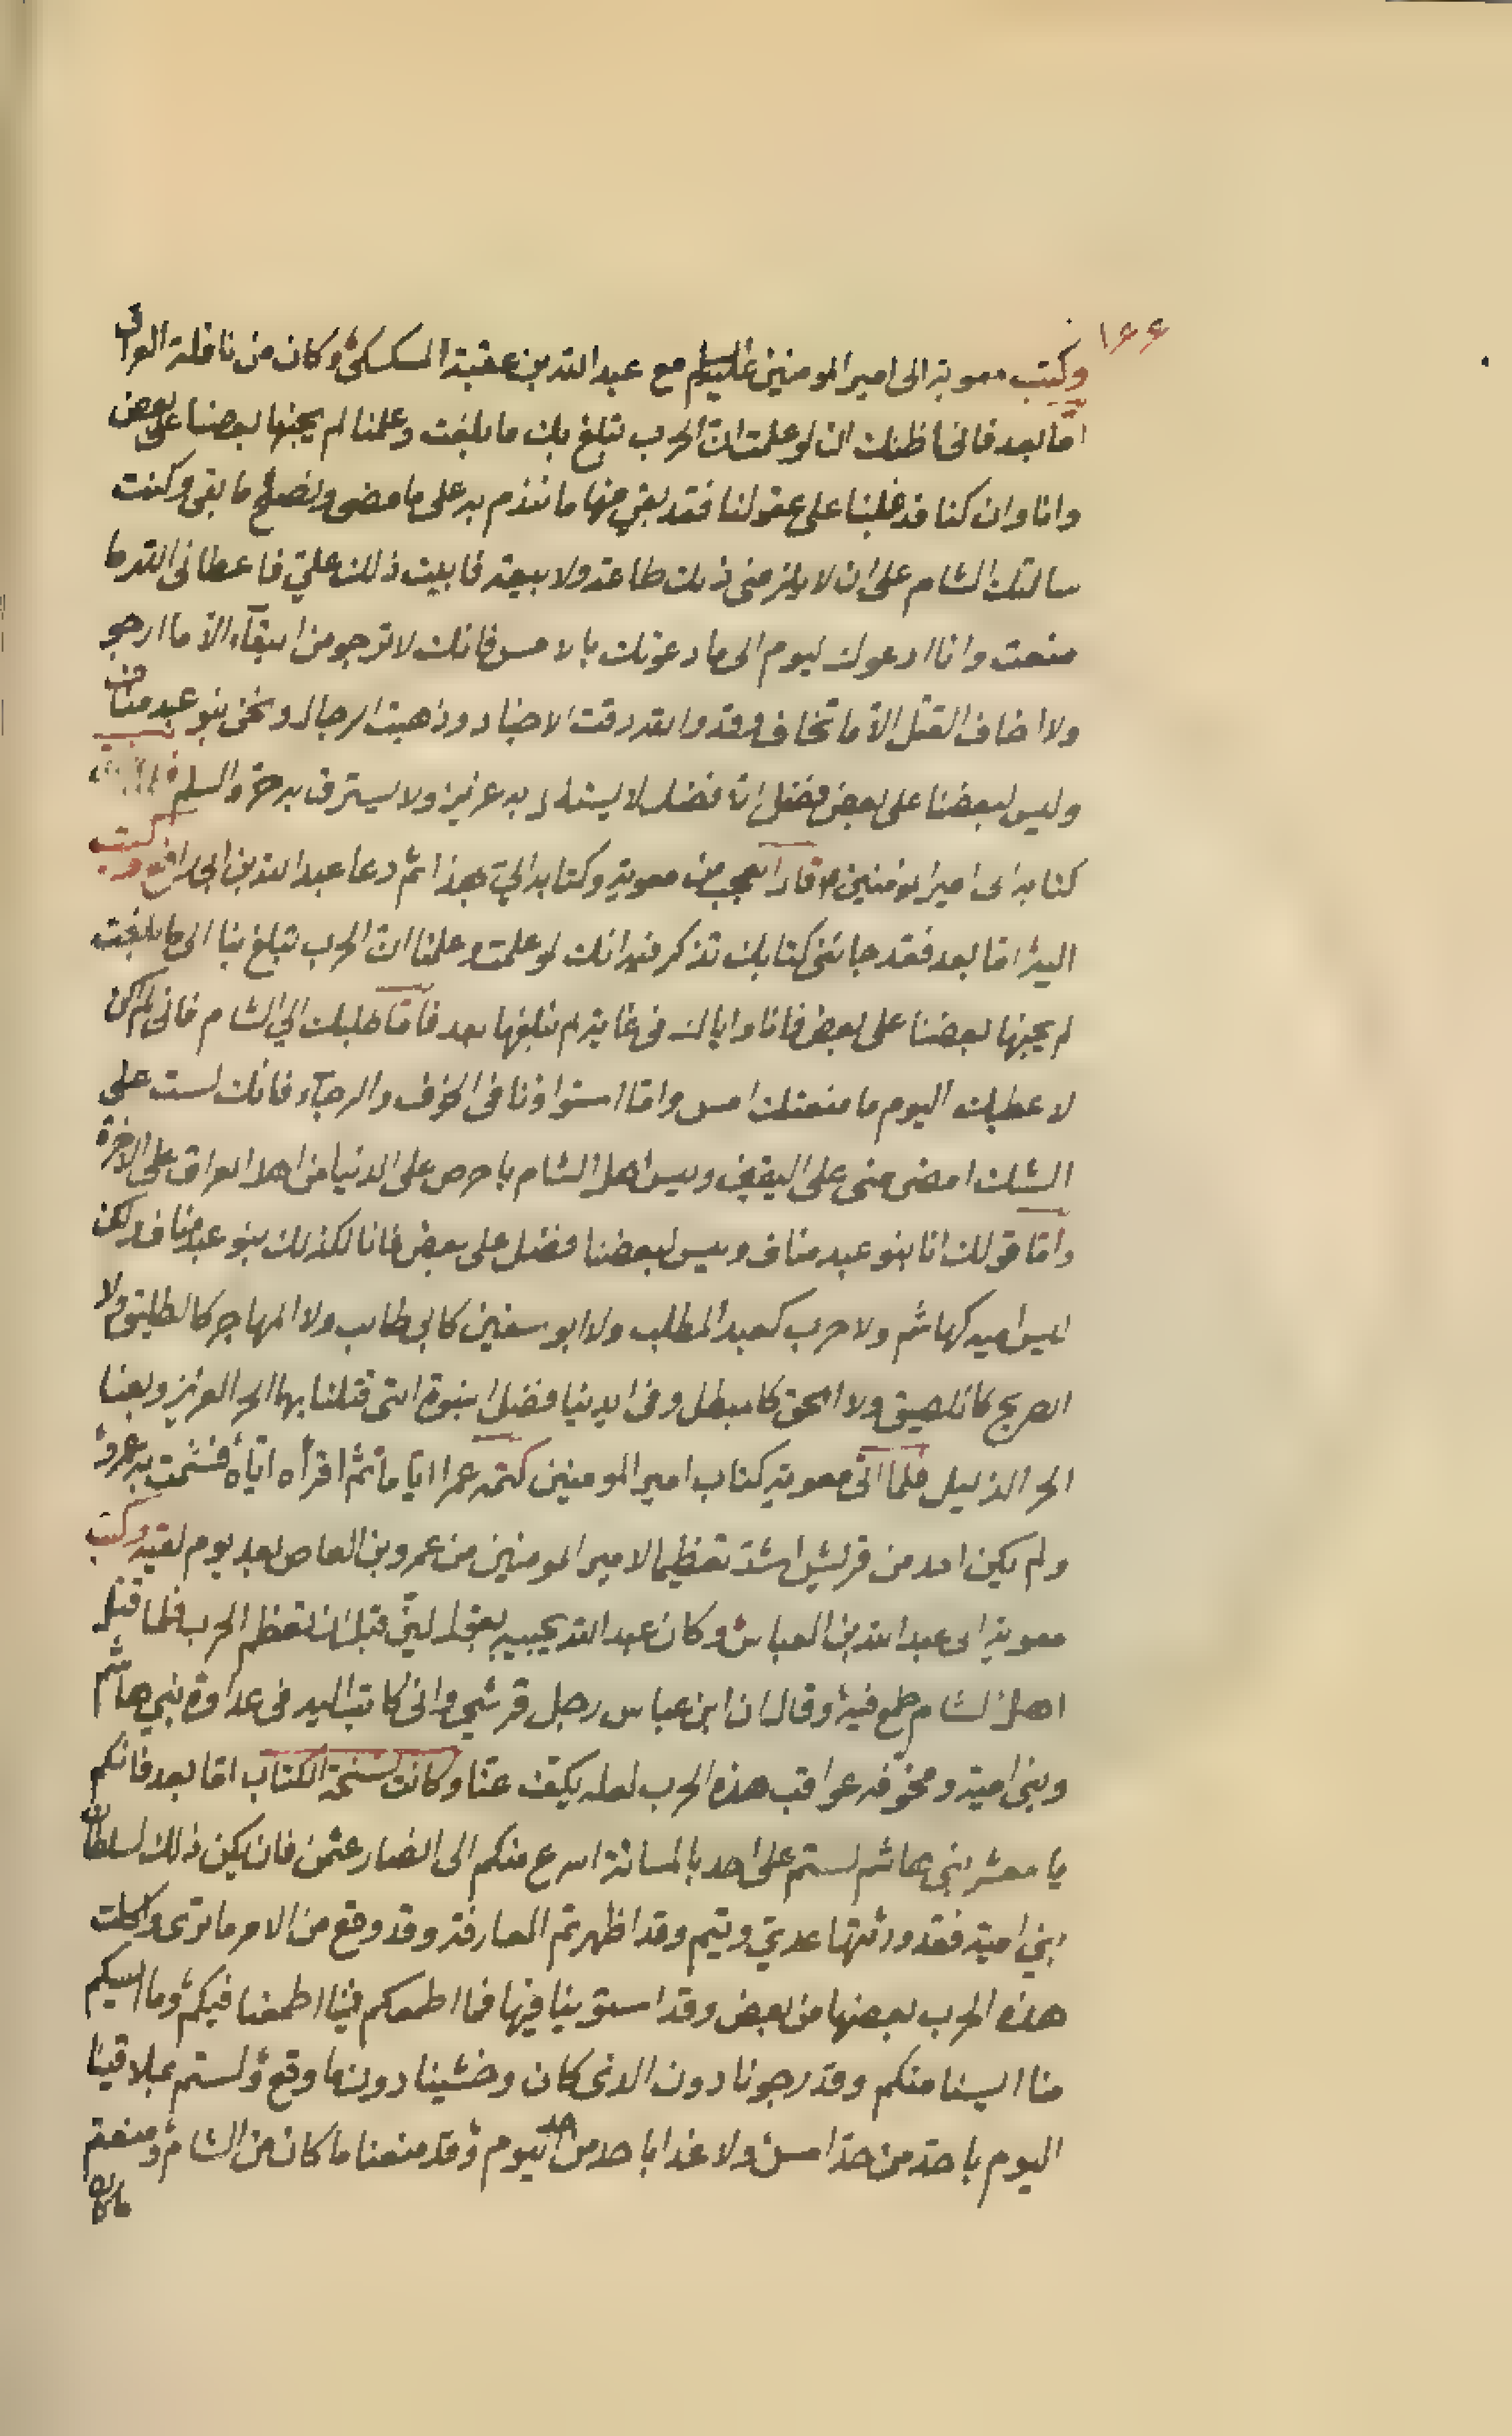 ١٦٦
وكتب معوية الى امير المومنين عليه السلم مع عبد الله بن عقبة السكسكي وكان من ناقلة العراق
امّا بعد فانى اظنك ان لو علمت انّ الحرب تبلغ بك ما بلغت وعلمنا لم يجنها بعضنا على بعض
وانا وان كنا قد غلبنا على عقولنا فقد بقي منها ما نندم به على ما مضى ونصلح ما بقى وكنت
سالتك الشام على ان لا يلزمنى ذلك طاعة ولا بيعة فابيت ذلك عليّ فاعطانى الله ما
منعت وانا ادعوك ليوم الى ما دعوتك بالامس فانك لا ترجو من البقآء الّا ما ارجو
ولا اخاف القتل الّا ما تخاف وقد والله رقت الاجناد وذهبت الرجال ونحن بنو عبد مناف
وليس لبعضنا على بعض فضل الّا فضل لا يستذل به عزيز ولا يسترق به حرّ والسلم
كتابه الى امير المومنين قال العجب من معوية وكتابه اليّ بهذا ثمّ دعا عبد الله بن ابى رافع وكتب
اليه امّا بعد فقد جائنى كتابك تذكر فيه انك لو علمت وعلمنا انّ الحرب تبلغ بنا الى ما بلغت
لم يجنها بعضنا على بعض فانا واياك فى غاية لم نبلغها بعد فامّا طلبك الي الشام فانى لم اكن
لاعطيك اليوم ما منعتك امس وامّا استواؤنا فى الخوف والرجآء فانك لست على
الشك امضى منى على اليقين وليس اهل الشام باحرص على الدنيا من اهل العراق على الاخرة
وامّا قولك انا بنو عبد مناف وليس لبعضنا فضل على بعض فانا لكذلك بنو عبد مناف ولكن
ليس اميه كهاشم ولا حرب كعبد المطلب ولا ابو سفين كابى طالب ولا المهاجر كالطليق ولا
الصريح كاللصيق ولا المحق كالمبطل وفى ايدينا فضل النبوة التى قتلنا بها الحر العزيز وبعنا
الحر الذليل فلما اتى معوية كتاب امير المومنين كتمه عمرا ايّاما ثمّ اقرأه ايّاه فشمت به عمرو
ولم يكن احد من قريش اشدّ تعظيما لامير المومنين من عمرو بن العاص بعد يوم لقيه وكتب
معوية الى عبد الله بن العباس وكان عبد الله يجيبه بقول ليّن قبل ان تعظم الحرب فلما قتل
اهل الشام طمع فيه وقال ان ابن عباس رجل قرشي وانى كاتب اليه فى عداوة بني هاشم
وبنى امية ومخوفه عواقب هذه الحرب لعله يكفّ عنّا وكانت نسخة الكتاب امّا بعد فانكم
يا معشر بني هاشم لستم على احد بالمسائة اسرع منكم الى انصار عثمن فان يكن ذلك لسلطان
بني امية فقد ورثتها عدي وتيم وقد اظهرتم المعارفة وقد وقع من الامر ما ترى واكلت
هذه الحرب بعضها من بعض وقد استوينا فيها فما اطمعكم فينا اطمعنا فيكم وما ايسكم
منا ايسنا منكم وقد رجونا دون الذى كان وخشينا دون ما وقع ولستم بملاقينا
اليوم باحدّ من حدّ امس ولا غدا باحد من حد اليوم وقد منعنا ما كان من الشام ومنعتم
ما كان